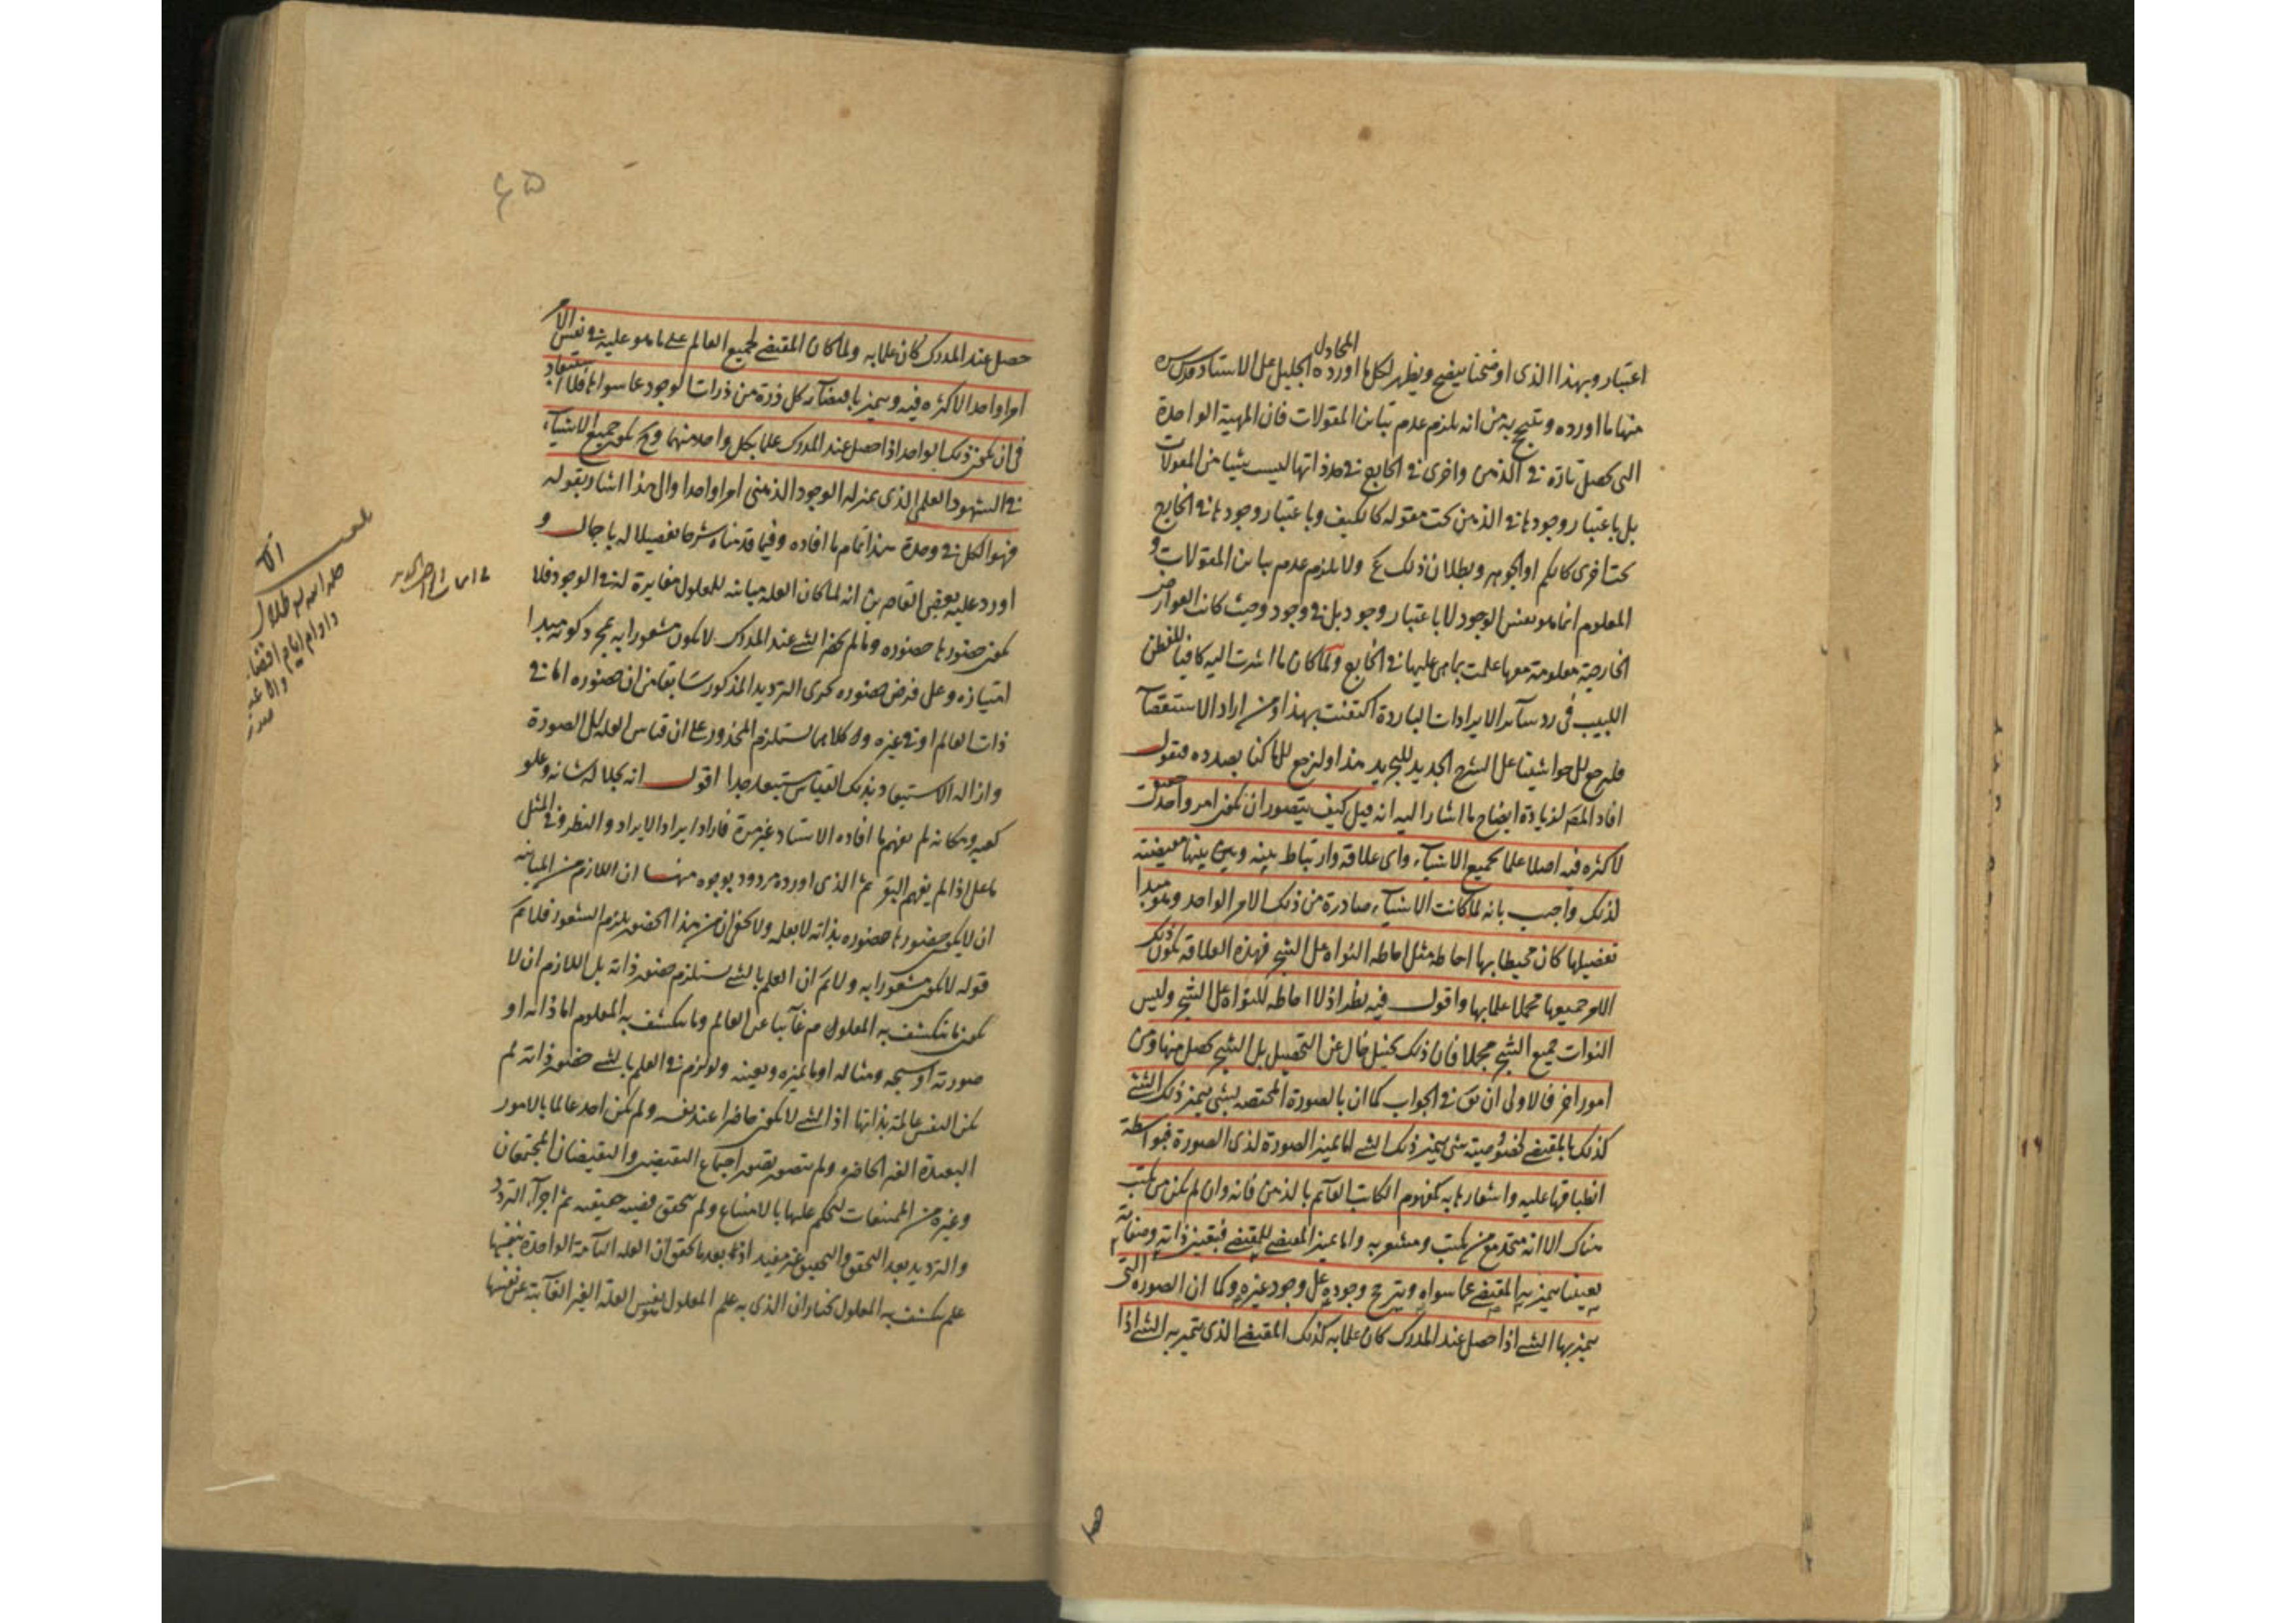 اعتبار وبهذا الذى اوضحنا يتضح ويظهر لكل ما اورده المجادل الجليل على الاستاد قدس سره
منها ما اورده وتبجح به من انه يلزم عدم تباين المقولات فان المهية الواحدة
التى تحصل تارة فى الذهن واخرى فى الخارج فى حد ذاتها ليست شيئا من المقولات
بل باعتبار وجودها فى الذهن تحت مقولة كالكيف وباعتبار وجودها فى الخارج
تحت اخرى كالكم او الجوهر وبطلان ذلك ع ولا يلزم عدم تباين المقولات و
المعلوم انما هو نفس الوجود لا باعتبار وجود بل فى وجود وحيث كانت العوارض
الخارجية معلومة معها علمت بما هى عليها فى الخارج ولما كان ما اشرت اليه كافيا للفطن
اللبيب فى رد سآئر الايرادات الباردة اكتفيت بهذا ومن اراد الاستقصآء
فليرجع الى حواشينا على الشرح الجديد للتجريد هذا ولنرجع الى ما كنا بصدده فنقول
افاد المصر لزيادة ايضاح ما اشار اليه انه قيل كيف يتصور ان يكون امر واحد
لا كثرة فيه اصلا علما بجميع الاشيآء واى علاقة وارتباط بينه وبين بينها مقتضية
لذلك واجيب بانه لما كانت الاشيآء صادرة من ذلك الامر الواحد وهو مبدا
تفصيلها كان محيطا بها احاطة مثل احاطة النواة على الشجر فهذه العلاقة يكون ذلك
الامر جميعها مجملا علما بها واقول فيه نظر اذ لا احاطة للنواة على الشجر وليس
النوات جميع الشجر مجملا فان ذلك تخيل خال عن التحصيل بل الشجر تحصل منها ومن
امور اخر فالاولى ان يق فى الجواب كما ان بالصورة المختصة بشى يتميز ذلك الشئ
كذلك بالمقتضى لخصوصية شى يتميز ذلك الشئ اما تميز الصورة لذى الصورة فبواسطة
انطباقها عليه واشعارها به كمفهوم الكاتب القآئم بالذهن فانه وان لم يكن من يكتب
هناك الا انه متحد مع من يكتب ومشعر به واما تميز المقتضى للمقتضى فبتعين ذاته وصفاته
تعينا يتميز به المقتضى عما سواه ويترجح وجوده على وجود غيره وكما ان الصورة التى
يتميز بها الشئ اذا حصل عند المدرك كان علما به كذلك المقتضى الذى يتميز به الشئ اذا
حصل عند المدرك كان علما به ولما كان المقتضى لجميع العالم على ما هو عليه فى نفس الامر
امرا واحدا لا كثرة فيه ويتميز باقتضآئه كل ذرة من ذرات الوجود عما سواها فلا استبعاد
فى ان يكون ذلك الواحد اذا حصل عند المدرك علما بكل واحد منها وح يكون جميع الاشيآء
فى الشهود العلمى الذى بمنزلة الوجود الذهنى امرا واحدا والى هذا اشار بقوله
فهو الكل فى وحدة هذا تمام ما افاده وفيما قدمناه شرحا تفصيلا له باجمال و
اورد عليه بعض القاصرين انه لما كان العلة مباينة للمعلول مغايرة له فى الوجود فلا
يكون حضورها حضوره وما لم يحضر الشئ عند المدرك لا يكون مشعورا به بمجرد كونه مبدا
امتيازه وعلى فرض حضوره يجرى الترديد المذكور سابقا من ان حضوره اما فى
ذات العالم او فى غيره وكلاهما يستلزم المحذور على ان قياس العلة الى الصورة
وازالة الاستبعاد بذلك القياس مستبعد جدا اقول انه بجلالة شانه وعلو
كعبه ومكانه لم يفهم ما افاده الاستاد غير مرة فاراد ايراد الايراد والنظر وفى المثل
ما على اذا لم يفهم البقر ثم الذى اورده مردود بوجوه منها ان اللازم من المباينة
ان لا يكون حضورها حضوره بذاته لا بعلمه ولا يخفى ان من هذا الحضور يلزم الشعور فلا يتم
قوله لا يكون مشعورا به ولا يتم ان العلم بالشئ يستلزم حضور ذاته بل اللازم ان لا
يكون ما ينكشف به المعلول م غآئبا عن العالم وما ينكشف به المعلوم اما ذاته او
صورته او شبحه ومثاله او ما يميزه ويعينه ولو لزم فى العلم بالشئ حضور ذاته لم
تكن النفس عالمة بذاتها اذ الشئ لا يكون حاضرا عند نفسه ولم يكن احد عالما بالامور
البعيدة الغير الحاضرة ولم يتصور تصور اجتماع النقيضين والنقيضان المجتمعان
وغيره من الممتنعات لنحكم عليها بالامتناع ولم يتحقق قضية حقيقية ثم اجرآء التردد
والترديد بعد التحقق والتحقيق غير مفيد اذ بعد ما تحقق ان العلة التآمة الواحدة بنفسها
علم ينكشف به المعلول نختار ان الذى به علم المعلول نفس العلة الغير الغآئبة عن نفسها